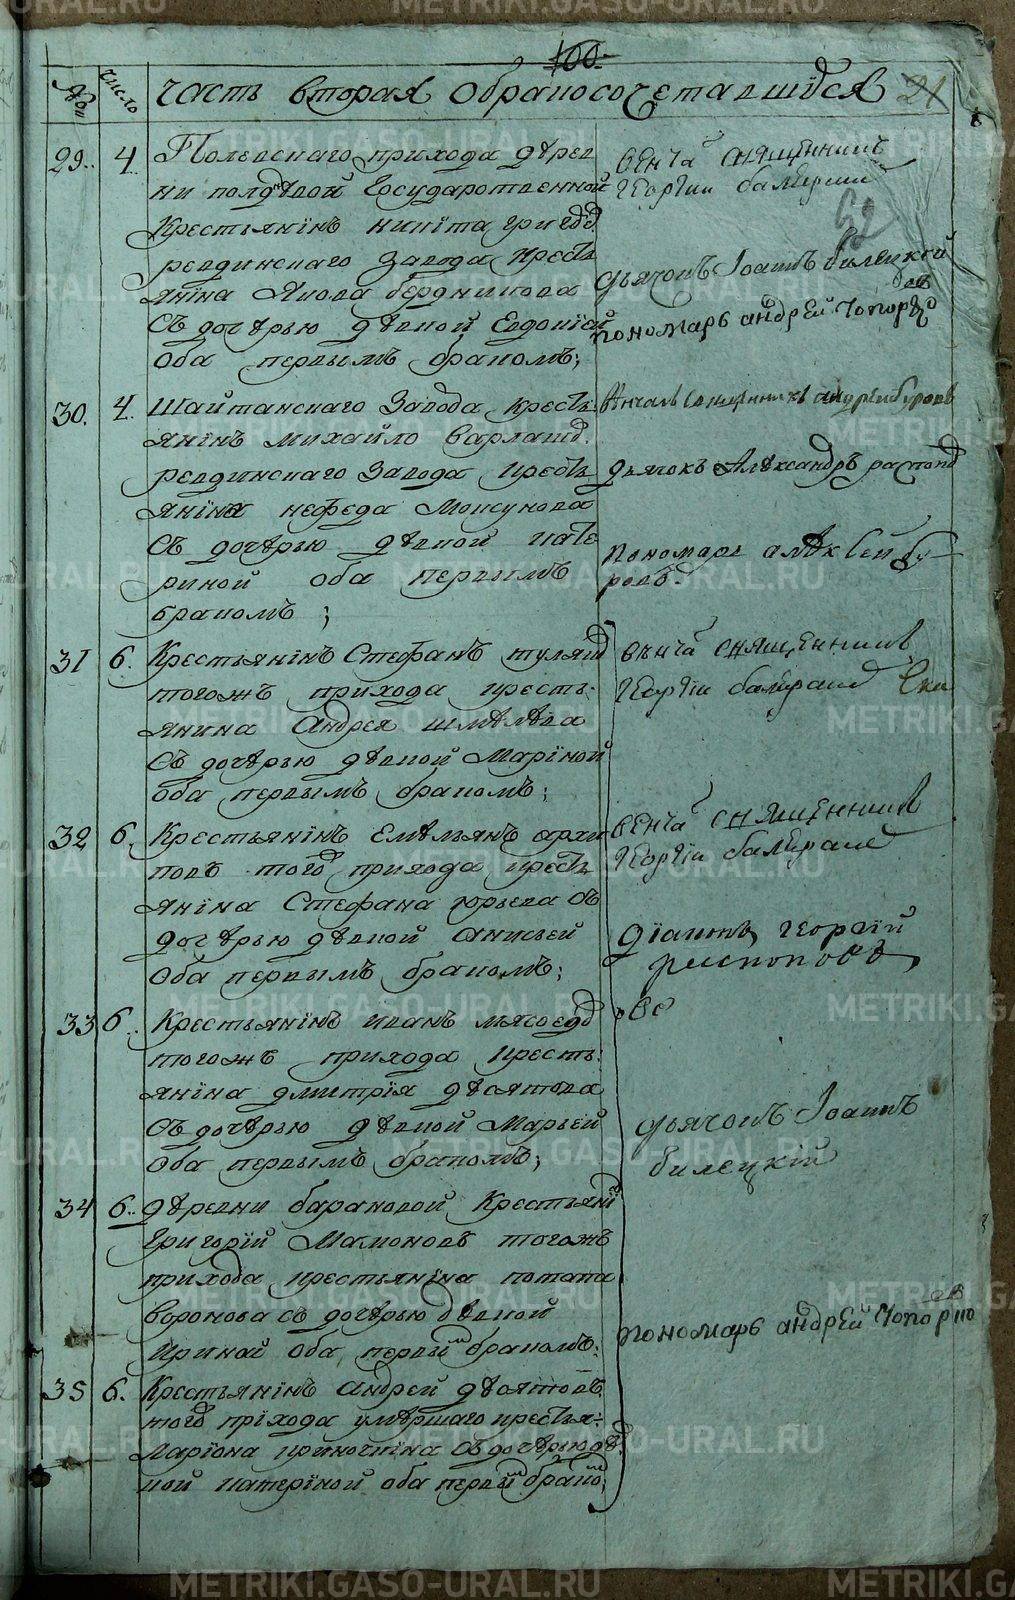 100
№ число часть вторая о бракосочетавшихся 21
29. 4. Полевскаго прихода дерев
ни полдневой Государственной
Крестьянїнъ никита
ревдинскаго Завода крестъ
янїна Якова бердникова
съ дочерью девкой Евдокїей
оба первымъ бракомъ;
венча священникъ
Георгии
62
дьячокъ Iоаннъ билецкой
пономарь андрей Чопор
30. 4. Шайтанскаго Завода крестъ
янїнъ михайло варлам
ревдинскаго Завода крестъ
янїна нефеда Моксунова
съ дочерью девкой кате
риной оба первымъ
бракомъ;
Венчалъ священникъ андрей буровъ
дьячокъ Александръ распоп
пономарь алексей бу
ровъ.
31 6. Крестьянїнъ Стефанъ туляк
тогожъ прихода кресть
янина Андрея шмелева
съ дочерью девкой Марїной
оба первымъ бракомъ;
венча священникъ
Георгїи
32 6. Крестьянїнъ Емельянъ архи
повъ того прихода крестъ
янїна Стефана юрьева съ
дочерью девкой анисьей
оба первымъ бракомъ;
венча священникъ
Георгїи
Дїаконъ георгїй
распоповъ
33 6. Крестьянїнъ иванъ мясоед
тогожъ прихода кресть
янїна дмитрїя десятова
съ дочерью девкой Марьей
оба первымъ бракомъ;
дьячокъ Iоаннъ
билецкїй
34 6. деревни барановой Крестьянї
Григорїй Мамоновъ тогожъ
прихода крестьянїна потапа
воронова съ дочерью девкой
Ириной оба первый бракомъ.
пономарь андрей Чопорно
35 6. Крестьянїнъ андрей десятовъ
того прїхода умершаго крестья
Марїона съ дочерью де
кой катерїной оба первый бракo;
METRIKI.GASO-URAL.RU